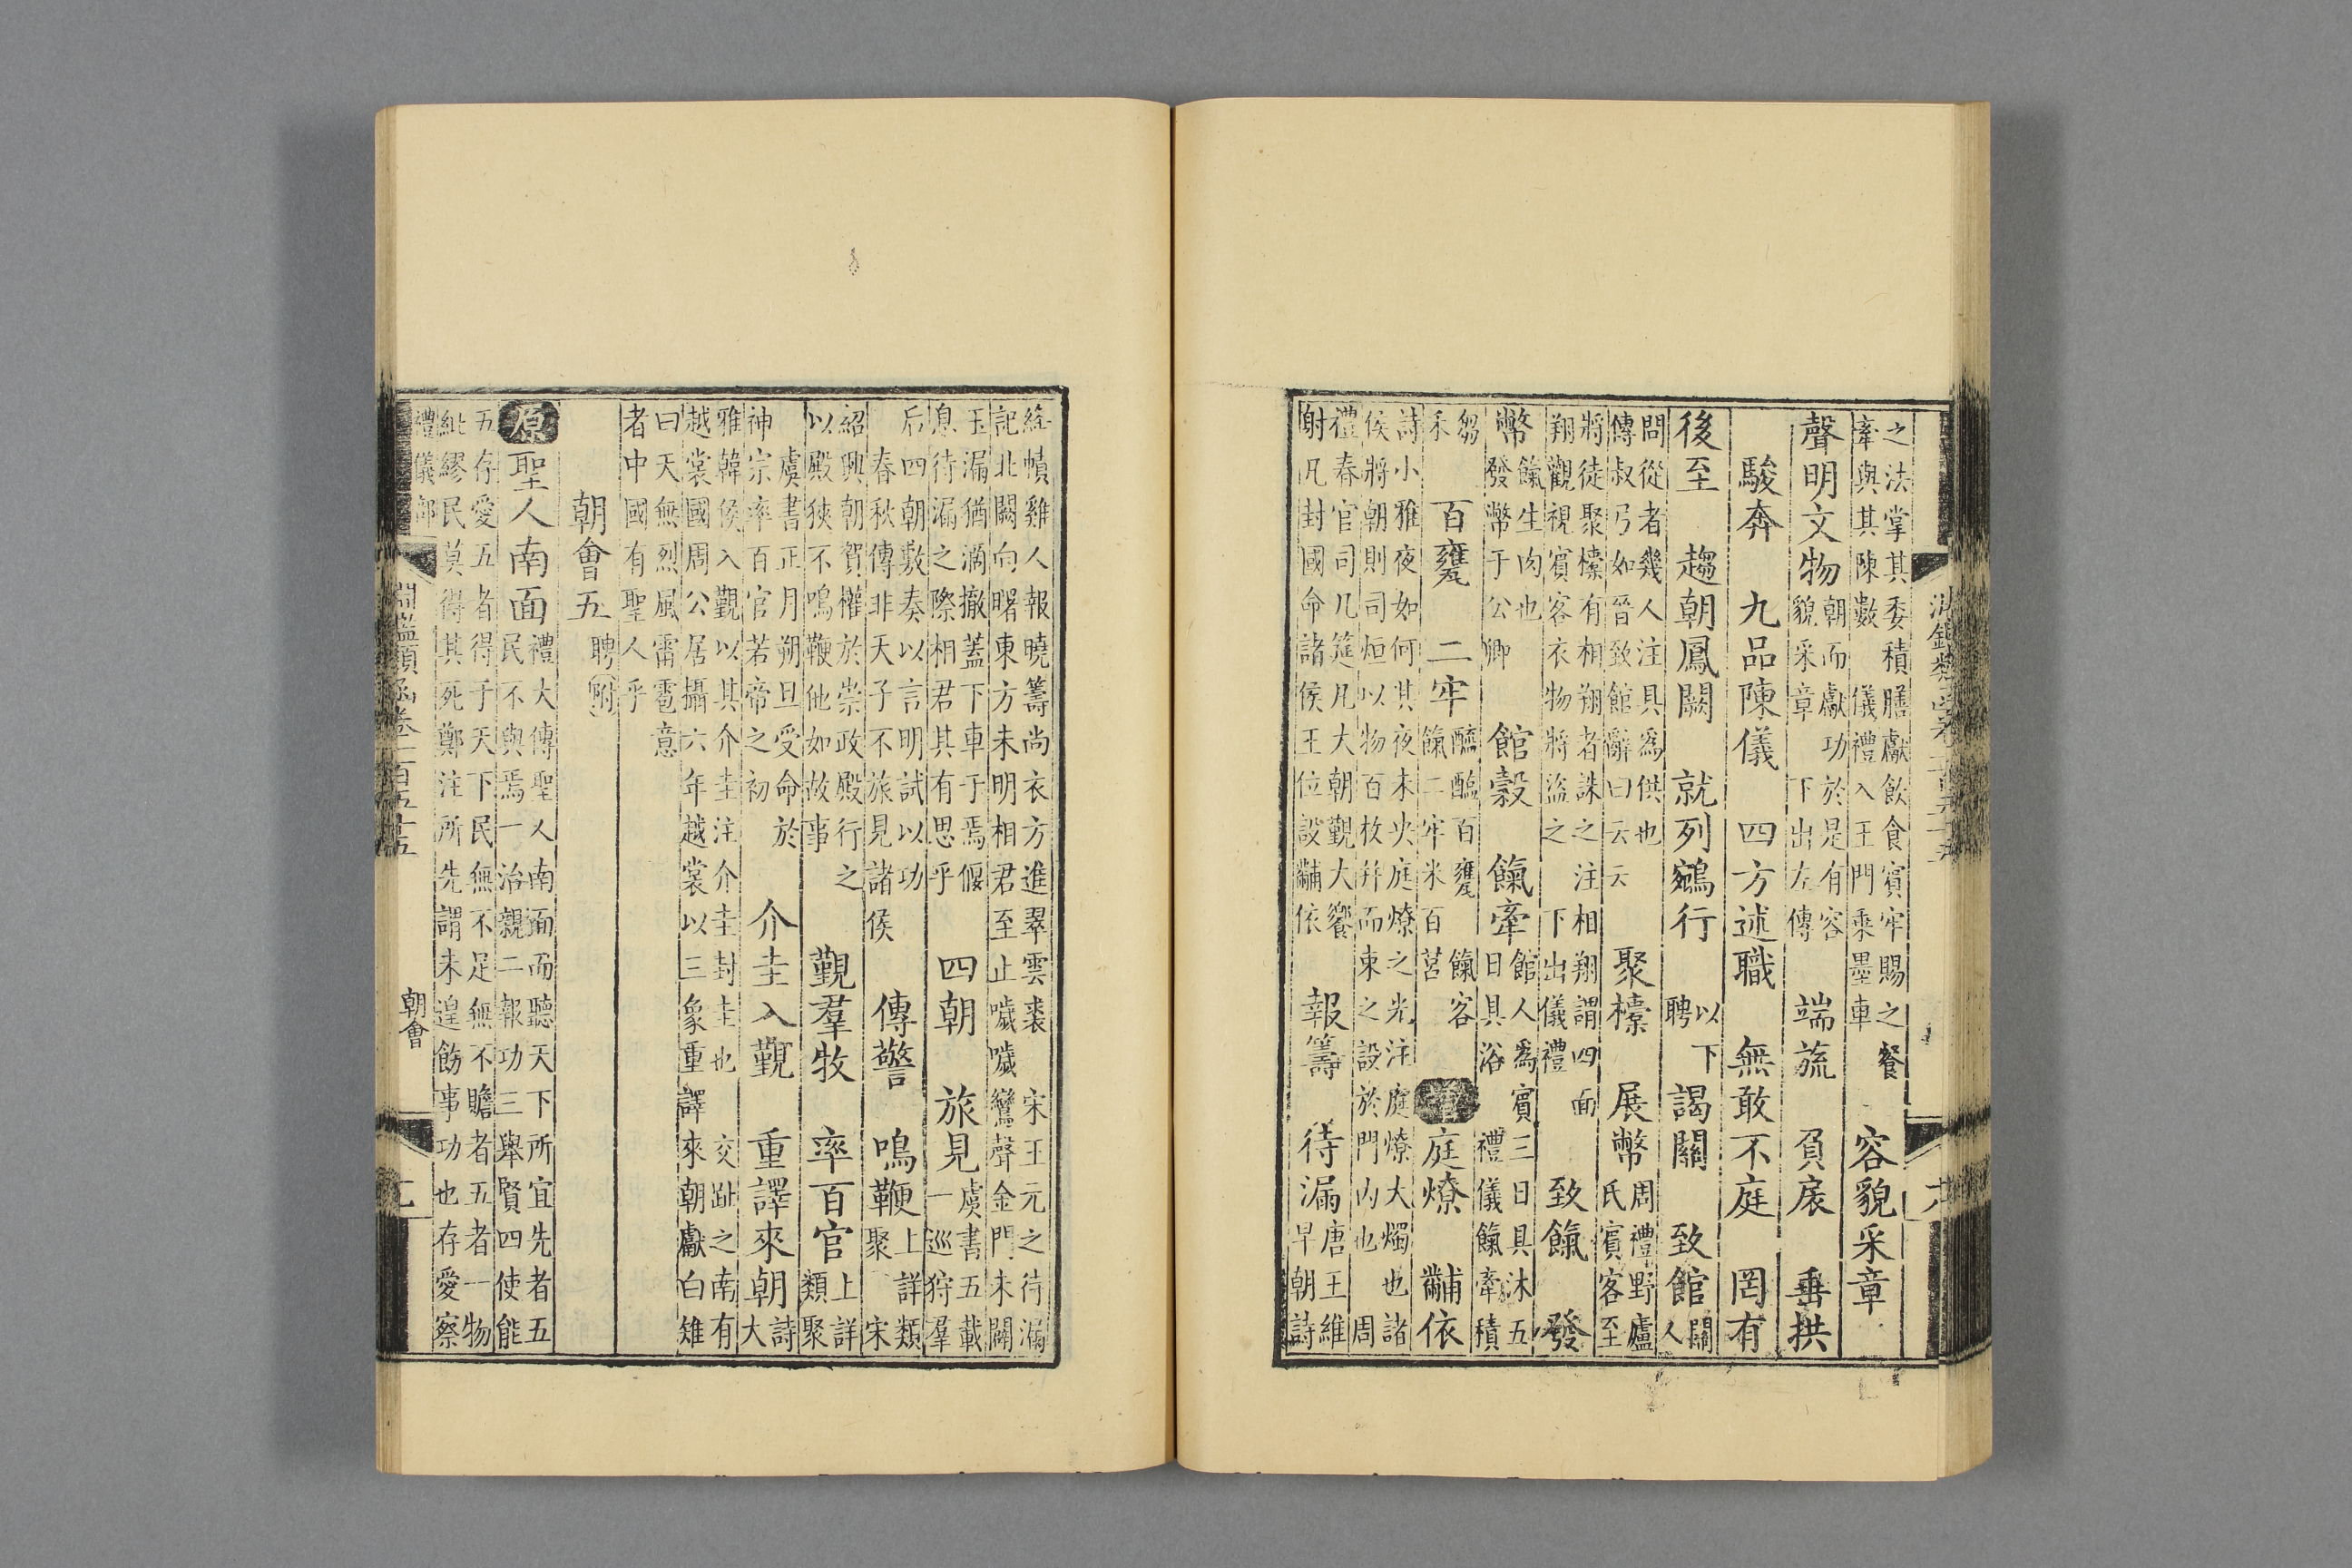 之法掌其委積膳獻飲食賓牢賜之餐
牽與其陳數　儀禮入王門乘墨車　容貌采章
聲明文物　朝而獻功於是有容貌采章　下出左傳　端旒　負扆　垂拱
駿奔　九品陳儀　四方述職　無敢不庭　罔有
後至　趨朝鳳闕　就列鵷行　以下聘　謁關　致館　關人
問從者幾人注具為供也　傳叔弓如晉致館辭曰云云　聚櫜　展幣　周禮野廬氏賓客至
將徒聚櫜有相翔者誅之注相翔謂四面翔觀視賓客衣物將盜之　下出儀禮　致餼　發
幣　餼生肉也發幣于公卿　館穀　餼牽　館人為賓三日具沐五日具浴　禮儀餼牽積
芻禾　百甕　二牢　醯醢百甕餼二牢米百筥　餼客　增　庭燎　黼依
詩小雅夜如何其夜未央庭燎之光注庭燎大燭也諸侯將朝則司烜以物百枚并而束之設於門內也　周
禮春官司几筵凡大朝覲大饗射凡封國命諸侯王位設黼依　報籌　待漏　唐王維早朝詩
絳幘雞人報曉籌尚衣方進翠雲裘　宋王元之待漏
記北闕向曙東方未明相君至止噦噦鸞聲金門未闢
玉漏猶滴撤蓋下車于焉偃息待漏之際相君其有思乎　四朝　旅見　虞書五載一巡狩羣
后四朝敷奏以言明試以功　春秋傳非天子不旅見諸侯　傳警　鳴鞭　上詳類聚　宋
紹興朝賀權於崇政殿行之以殿狹不鳴鞭他如故事　覲羣牧　率百官　上詳類聚
虞書正月朔旦受命於神宗率百官若帝之初　介圭入覲　重譯來朝　詩大
雅韓侯入覲以其介圭注介圭封圭也　交趾之南有越裳國周公居攝六年越裳以三象重譯來朝獻白雉
曰天無烈風雷雹意者中國有聖人乎
朝會五　聘附
原　聖人南面　禮大傳聖人南面而聽天下所宜先者五民不與焉一治親二報功三舉賢四使能
五存愛五者得于天下民無不足無不贍者五者一物紕繆民莫得其死鄭注所先謂未遑餝事功也存愛察
禮儀部
淵鑑類函卷一百五十五　朝會